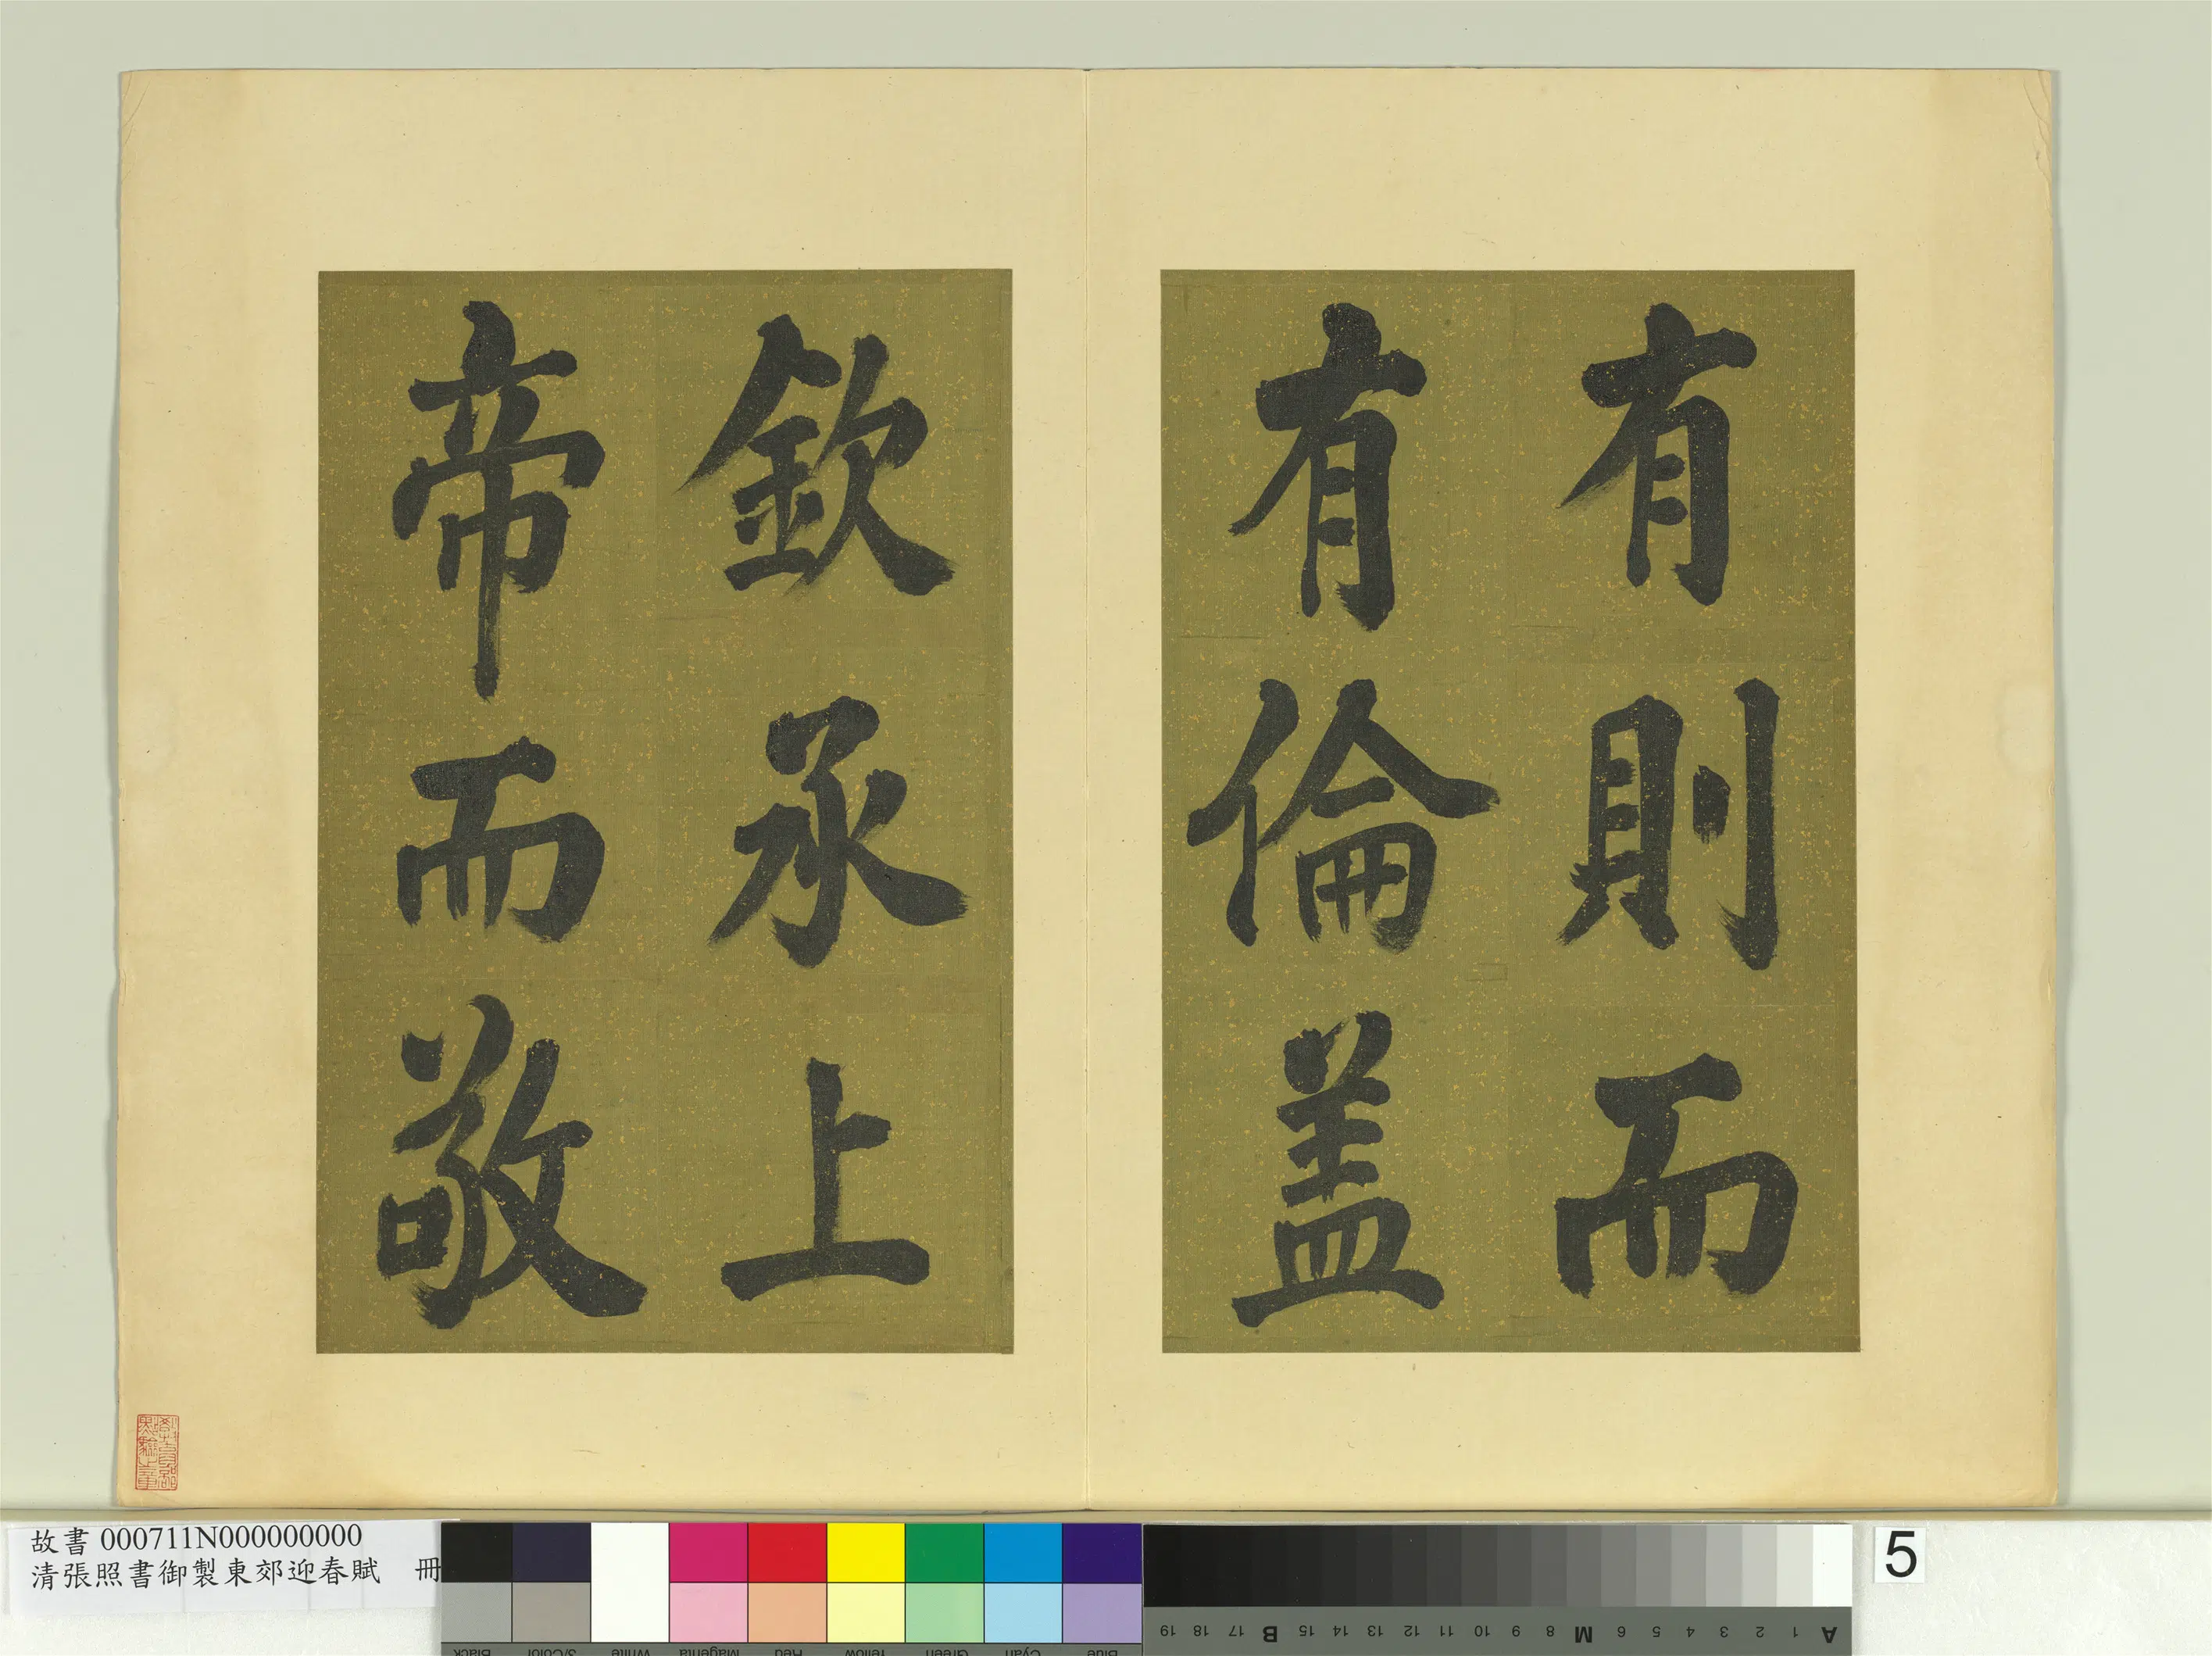 有則而
有倫蓋
欽承上
帝而敬
故書 000711N000000000
清張照書御製東郊迎春賦 冊
5
Black 3/Color White Magenta Red Yellow Green Cyan Blue
A 1 2 3 4 5 6 M 8 9 10 11 12 13 14 15 B 17 18 19